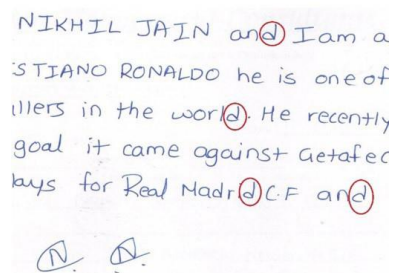 NIKHIL JAIN and I am a
STIANO RONALDO he is one of
llers in the world. He recently
goal it came against Getafe C
lays for Real Madrd C.F and
N. N.